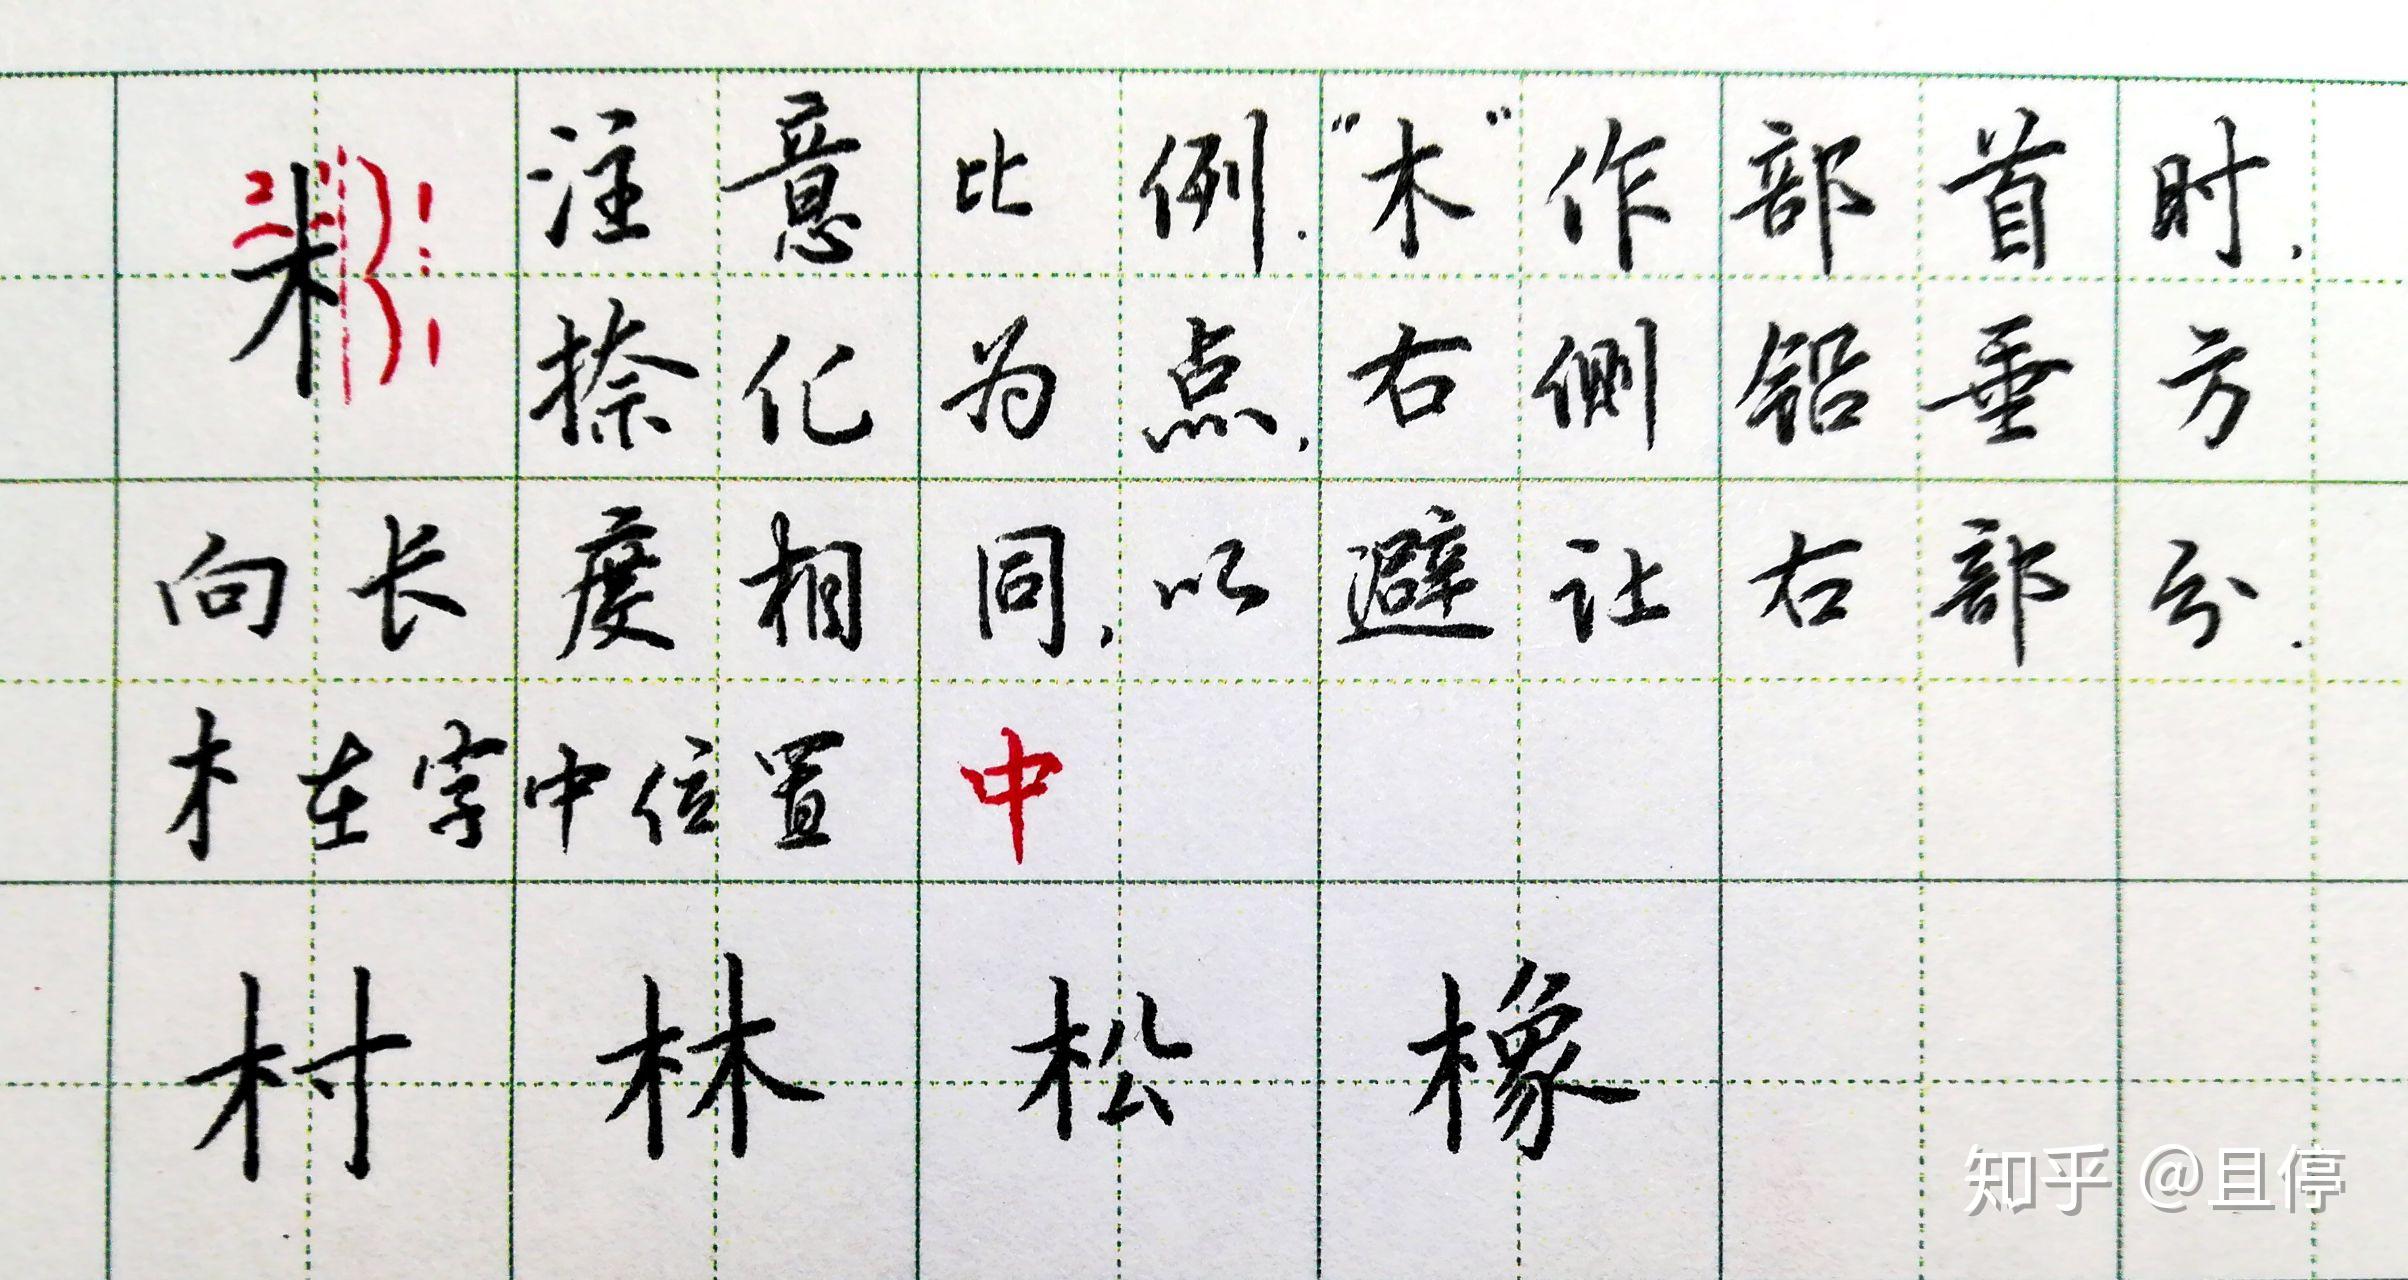 木 注意比例."木"作部首时,
捺化为点,右侧铅垂方
向长度相同,以避让右部分.
木在字中位置 中
村 林 松 橡
知乎 @且停